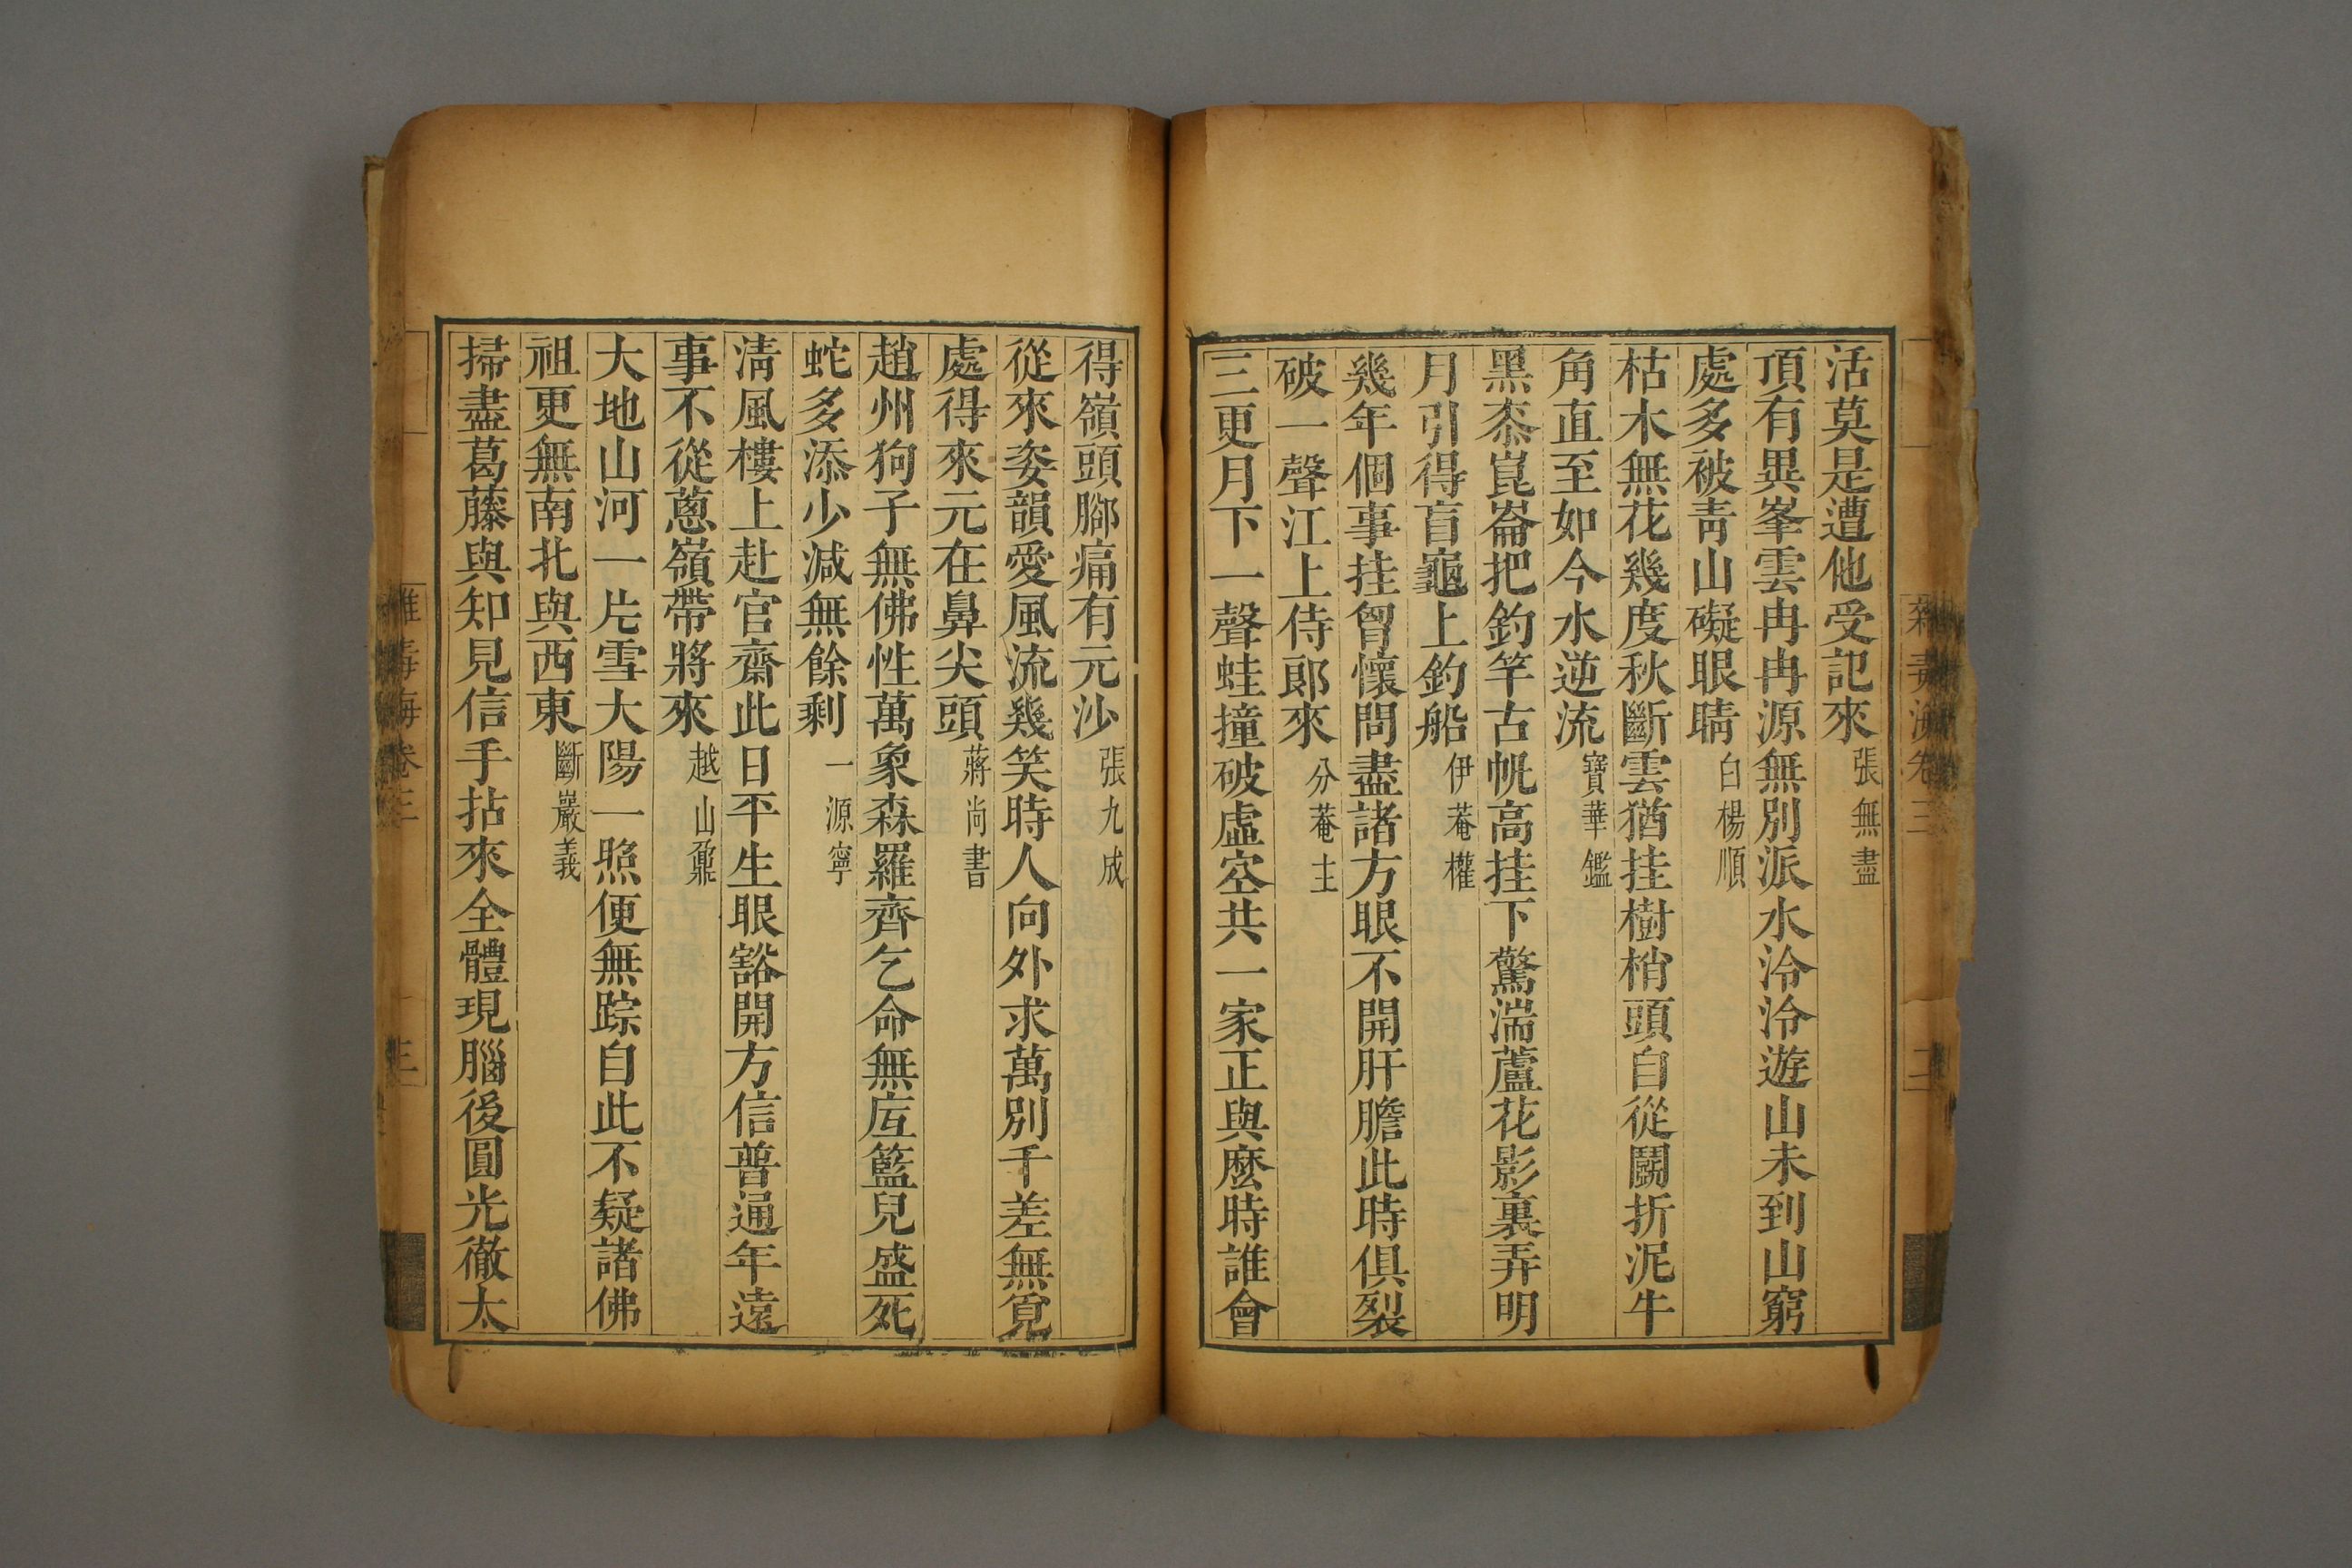 活莫是遭他受記來 張無盡
頂有異峯雲冉冉源無別派水泠泠遊山未到山窮
處多被靑山礙眼睛 白楊順
枯木無花幾度秋斷雲猶挂樹梢頭自從鬬折泥牛
角直至如今水逆流 寶華鑑
黑桼崑崙把釣竿古帆高挂下驚湍蘆花影裏弄明
月引得盲龜上釣船 伊菴權
幾年個事挂胷懷問盡諸方眼不開肝膽此時俱裂
破一聲江上侍郞來 分菴主
三更月下一聲蛙撞破虛空共一家正與麽時誰會
得嶺頭腳痛有元沙 張九成
從來姿韻愛風流幾笑時人向外求萬別千差無覓
處得來元在鼻尖頭 蔣尚書
趙州狗子無佛性萬象森羅齊乞命無底籃兒盛死
蛇多添少減無餘剩 一源寧
淸風樓上赴官齋此日平生眼豁開方信普通年遠
事不從蔥嶺帶將來 越山鼐
大地山河一片雪大陽一照便無踪自此不疑諸佛
祖更無南北與西東 斷巖義
掃盡葛藤與知見信手拈來全體現腦後圓光徹太
雜毒海卷三
三